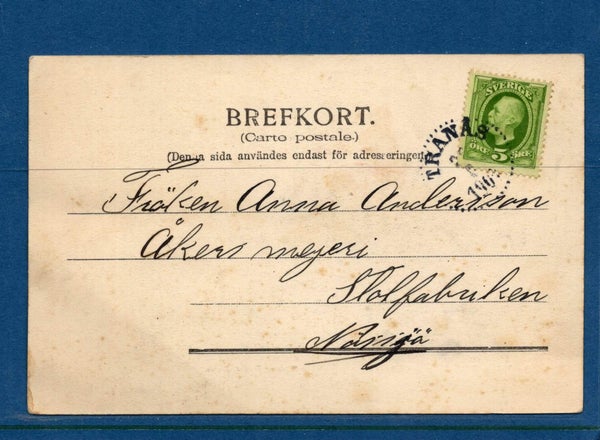 SVERIGE
ÖRE 5 ÖRE
TRANÅS
BREFKORT.
(Carte postale.)
(Denna sida användes endast för adresseringen.)
Fröken Anna Andersson
Åkers mejeri
Stolfabriken
Nässjö